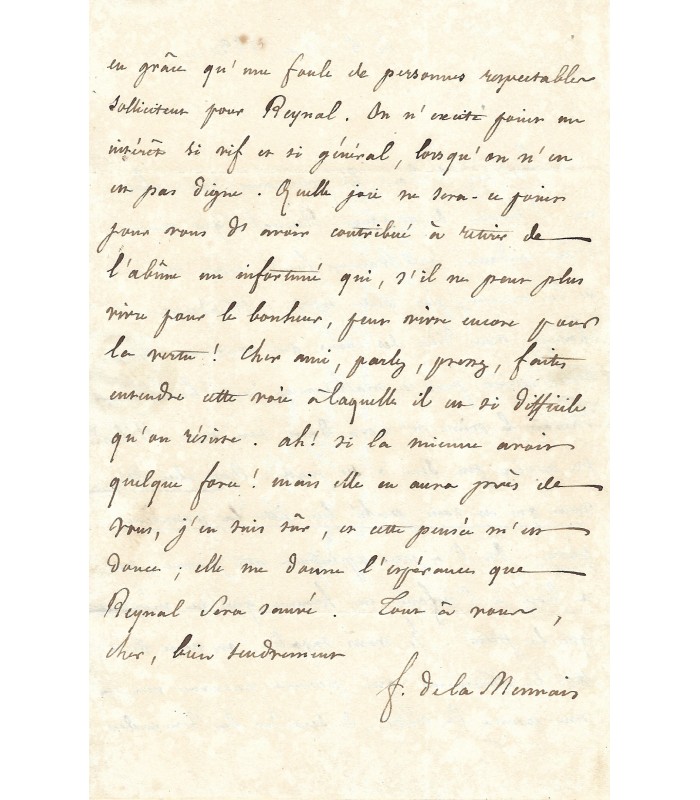 en grâce qu'une foule de personnes respectables
sollicitent pour Reynal. On n'excite point un
intérêt si vif et si général, lorsqu'on n'en
est pas digne. Quelle joie ne sera-ce point
pour vous d'avoir contribué à retirer de
l'abîme un infortuné qui, s'il ne peut plus
vivre pour le bonheur, peut vivre encore pour
la vertu! Cher ami, parlez, pressez, faites
entendre cette voix à laquelle il est si difficile
qu'on résiste. ah! si la mienne avait
quelque force! mais elle en aura près de
vous, j'en suis sûr, et cette pensée m'est
douce; elle me donne l'espérance que
Reynal sera sauvé. Tout à vous,
cher, bien tendrement
f. de la Mennais